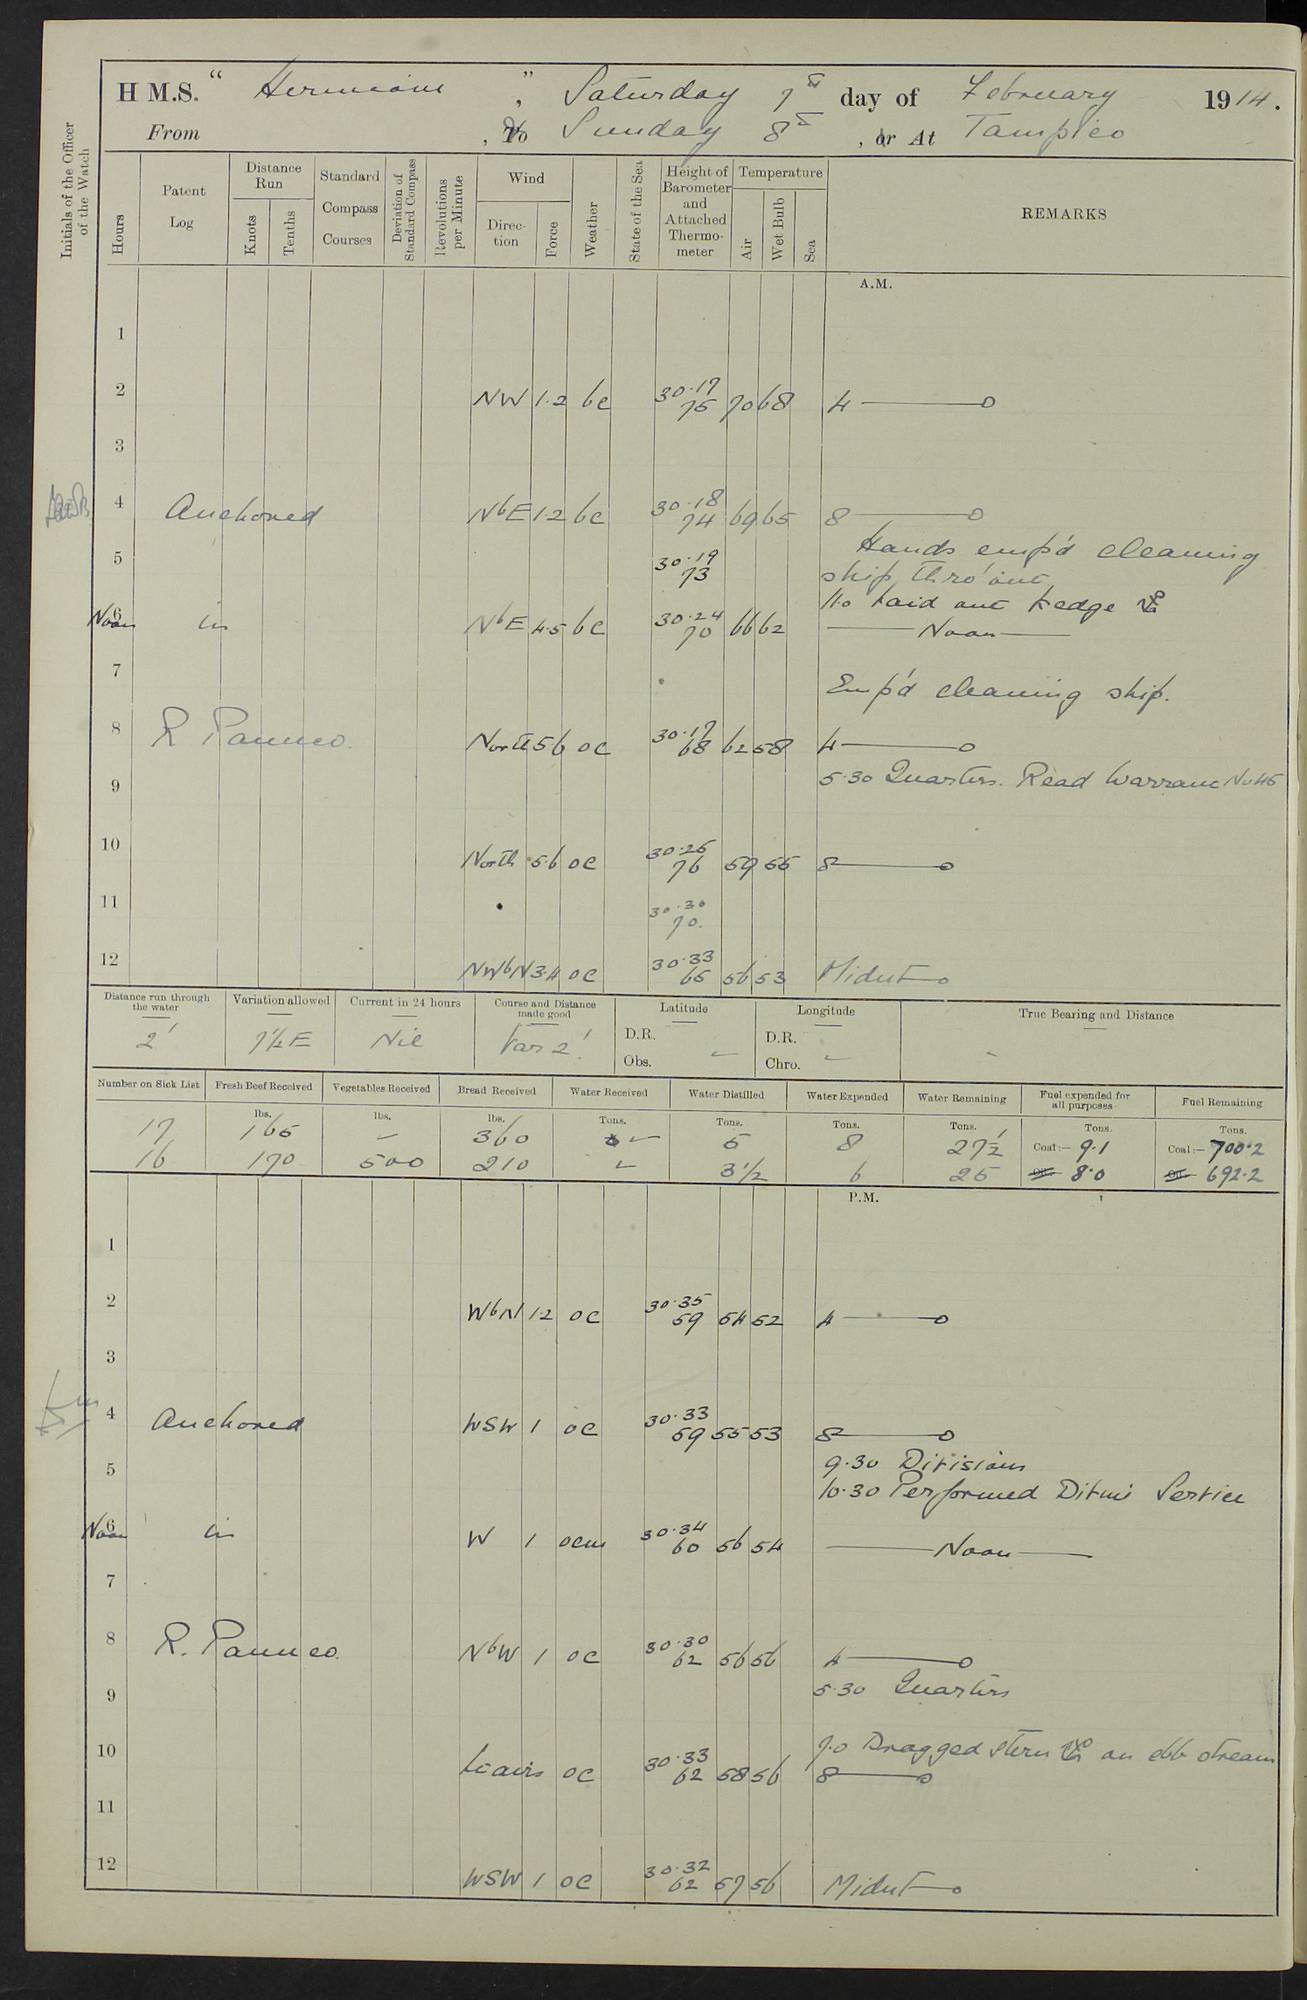 H.M.S. " Hermione " Saturday 7th day of February 1914.
From , To Sunday 8th , or At Tampico
Initials of the Officer of the Watch
Hours
Patent Log
Distance Run
Knots
Tenths
Standard Compass Courses
Deviation of Standard Compass
Revolutions per Minute
Wind
Direction
Force
Weather
State of the Sea
Height of Barometer and Attached Thermometer
Temperature
Air
Wet Bulb
Sea
REMARKS
A.M.
1
2 NW 1.2 bc 30.17 75 70 68 4
3
4 Anchored NbE 1.2 bc 30.18 74 69 65 8
Hands emp'd cleaning
5 30.19 73 ship thro'out
11.0 Laid out kedge
6 Noon in NbE 4.5 bc 30.24 70 66 62 Noon
7 Emp'd cleaning ship.
8 R Panuco. North 5.6 oc 30.17 68 62 58 4
9 5.30 Quarters. Read Warrant No 45
10 North 5.6 oc 30.25 76 59 55 8
11 30.30 70.
12 NWbN 3.4 oc 30.33 65 56 53 Midnt
Distance run through the water 2'
Variation allowed 7½ E
Current in 24 hours Nil
Course and Distance made good Var 2'.
Latitude
D.R.
Obs. -
Longitude
D.R.
Chro. -
True Bearing and Distance
-
Number on Sick List Fresh Beef Received Vegetables Received Bread Received Water Received Water Distilled Water Expended Water Remaining Fuel expended for all purposes Fuel Remaining
lbs. lbs. lbs. Tons. Tons. Tons. Tons. Tons. Tons.
17 165 - 360 - 5 8 27½ Coal:- 9.1 Coal:- 700.2
16 170 500 210 - 3½ 6 25 Oil 8.0 Oil 692.2
P.M.
1
2 WbN 1.2 oc 30.35 59 54 52 4
3
4 Anchored WSW 1 oc 30.33 59 55 53 8
9.30 Divisions
5 10.30 Performed Divine Service
6 Noon in W 1 ocm 30.34 60 56 54 Noon
7
8 R. Panuco. NbW 1 oc 30.30 62 56 56 4
9 5.30 Quarters
7.0 Dragged stern on ebb stream
10 Lt airs oc 30.33 62 58 56 8
11
12 WSW 1 oc 30.32 62 57 56 Midnt